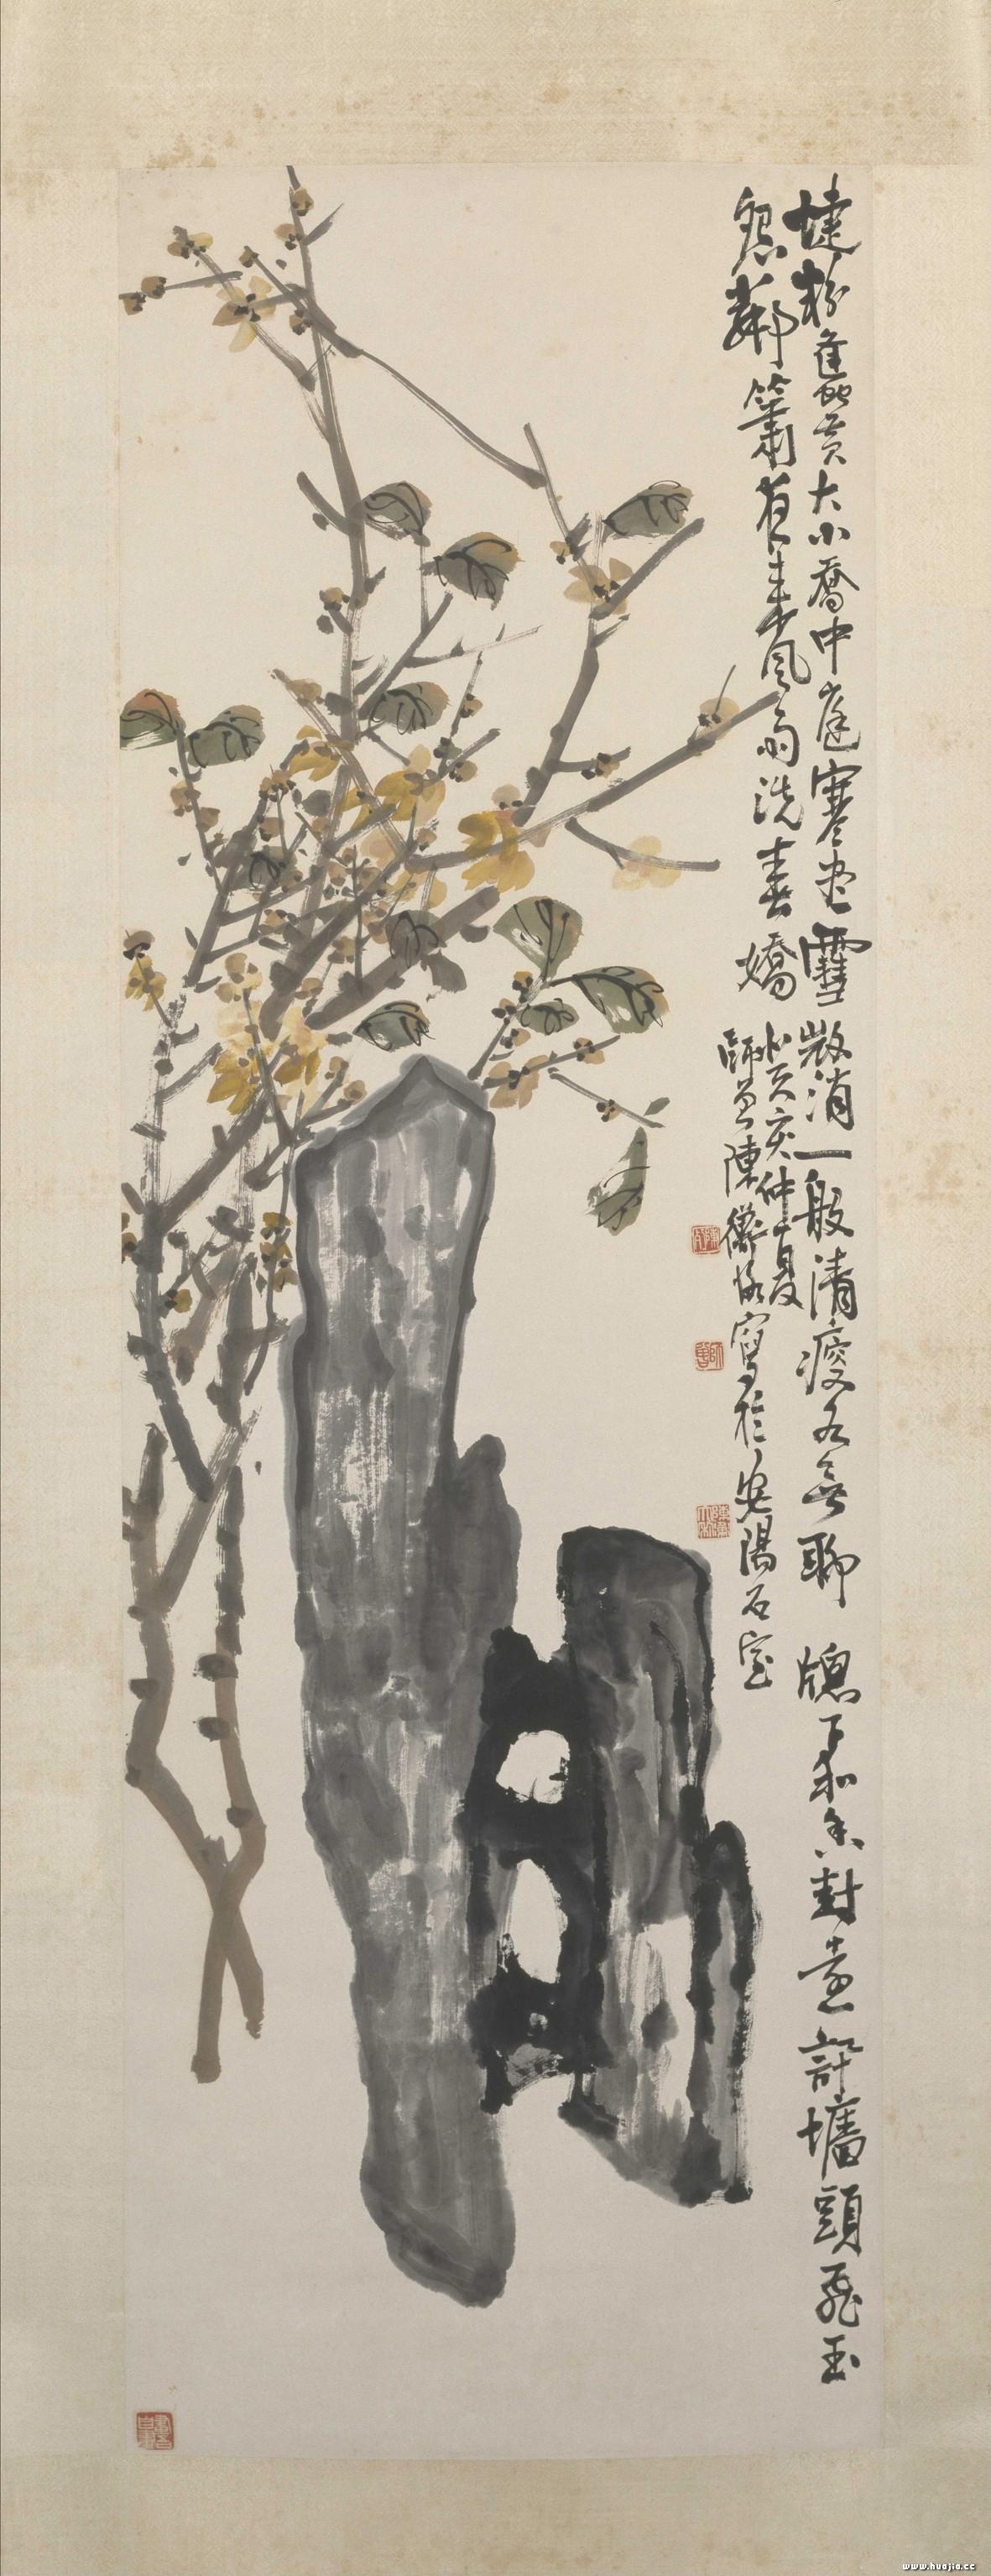 蜨粉蜂黃大小喬中庭寒盡雪微消一般清瘦各無聊 窗下和香對遠訴墻頭飛玉
怨鄰簫有來風雨洗春嬌
癸亥仲夏
師曾陳衡恪寫於安陽石室
www.huajia.cc